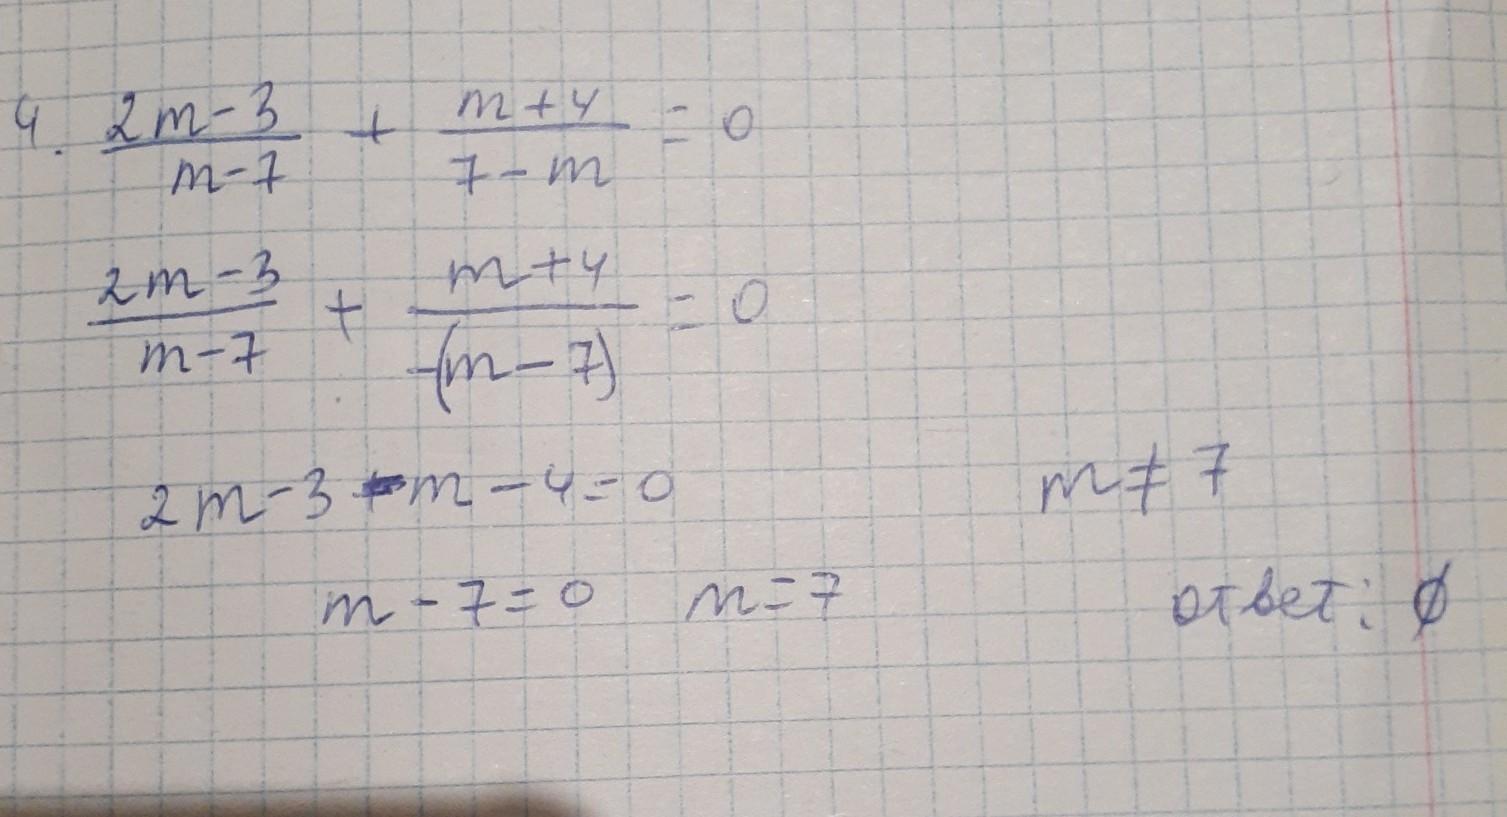 4. (2m-3)/(m-7) + (m+4)/(7-m) = 0
(2m-3)/(m-7) + (m+4)/(-(m-7)) = 0
2m-3-m-4=0 m≠7
m-7=0 m=7 ответ: ∅